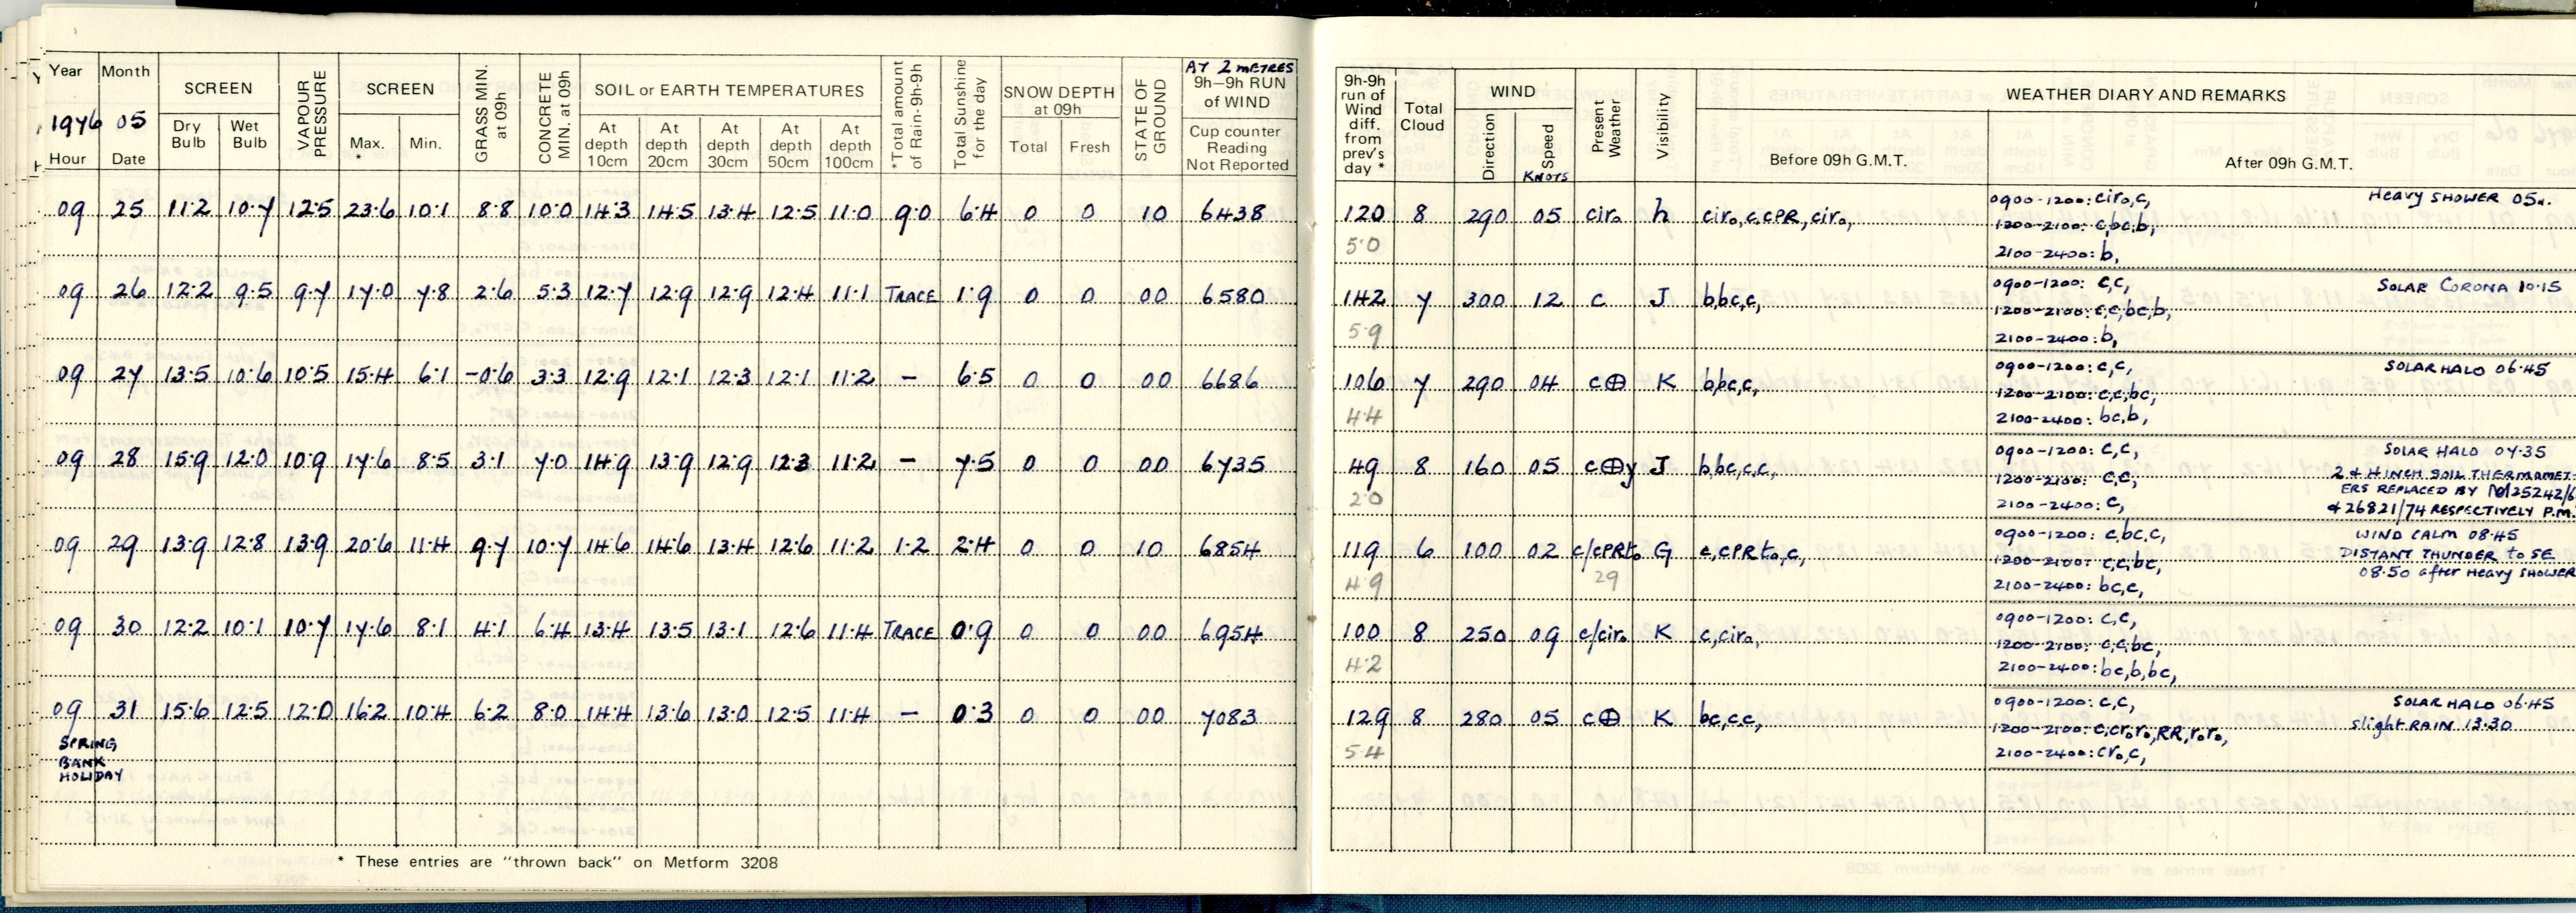 Year Month SCREEN VAPOUR PRESSURE SCREEN GRASS MIN. at 09h CONCRETE MIN. at 09h SOIL or EARTH TEMPERATURES *Total amount of Rain-9h-9h Total Sunshine for the day SNOW DEPTH at 09h STATE OF GROUND AT 2 METRES 9h–9h RUN of WIND
1976 05 Dry Bulb Wet Bulb Max. * Min. At depth 10cm At depth 20cm At depth 30cm At depth 50cm At depth 100cm Total Fresh Cup counter Reading Not Reported
Hour Date
09 25 11·2 10·7 12·5 23·6 10·1 8·8 10·0 14·3 14·5 13·4 12·5 11·0 9·0 6·4 0 0 10 6438
09 26 12·2 9·5 9·7 17·0 7·8 2·6 5·3 12·7 12·9 12·9 12·4 11·1 TRACE 1·9 0 0 00 6580
09 27 13·5 10·6 10·5 15·4 6·1 -0·6 3·3 12·9 12·1 12·3 12·1 11·2 – 6·5 0 0 00 6686
09 28 15·9 12·0 10·9 17·6 8·5 3·1 7·0 14·9 13·9 12·9 12·3 11·2 – 7·5 0 0 00 6735
09 29 13·9 12·8 13·9 20·6 11·4 9·7 10·7 14·6 14·6 13·4 12·6 11·2 1·2 2·4 0 0 10 6854
09 30 12·2 10·1 10·7 17·6 8·1 4·1 6·4 13·4 13·5 13·1 12·6 11·4 TRACE 0·9 0 0 00 6954
09 31 15·6 12·5 12·0 16·2 10·4 6·2 8·0 14·4 13·6 13·0 12·5 11·4 – 0·3 0 0 00 7083
SPRING
BANK
HOLIDAY
* These entries are "thrown back" on Metform 3208
9h-9h run of Wind diff. from prev's day * Total Cloud WIND Present Weather Visibility WEATHER DIARY AND REMARKS
Direction Speed KNOTS Before 09h G.M.T. After 09h G.M.T.
120 8 290 05 cir₀ h cir₀,c,cPR,cir₀, 0900-1200: cir₀,c, Heavy SHOWER
5·0 1200-2100: c,bc,b,
2100-2400: b,
142 7 300 12 c J b,bc,c, 0900-1200: c,c, SOLAR CORONA 10·15
5·9 1200-2100: c,c,bc,b,
2100-2400: b,
106 7 290 04 c⊕ K b,bc,c, 0900-1200: c,c, SOLAR HALO 06·45
4·4 1200-2100: c,c,bc,
2100-2400: bc,b,
49 8 160 05 c⊕y J b,bc,c,c, 0900-1200: c,c, SOLAR HALO 07·35
2·0 1200-2100: c,c, 2 & 4 INCH SOIL THERMOMET-
ERS REPLACED BY
2100-2400: c, & 26821/74 RESPECTIVELY P.M.
119 6 100 02 c/cPRt₀ G c,cPRt₀,c, 0900-1200: c,bc,c, WIND CALM 08·45
DISTANT THUNDER to SE
4·9 29 1200-2100: c,c,bc, 08·50 after Heavy SHOWER
2100-2400: bc,c,
100 8 250 09 c/cir₀ K c,cir₀, 0900-1200: c,c,
4·2 1200-2100: c,c,bc,
2100-2400: bc,b,bc,
129 8 280 05 c⊕ K bc,c,c, 0900-1200: c,c, SOLAR HALO 06·45
5·4 1200-2100: c,cr₀r₀,RR,r₀r₀, slight RAIN 13·30
2100-2400: cr₀,c,